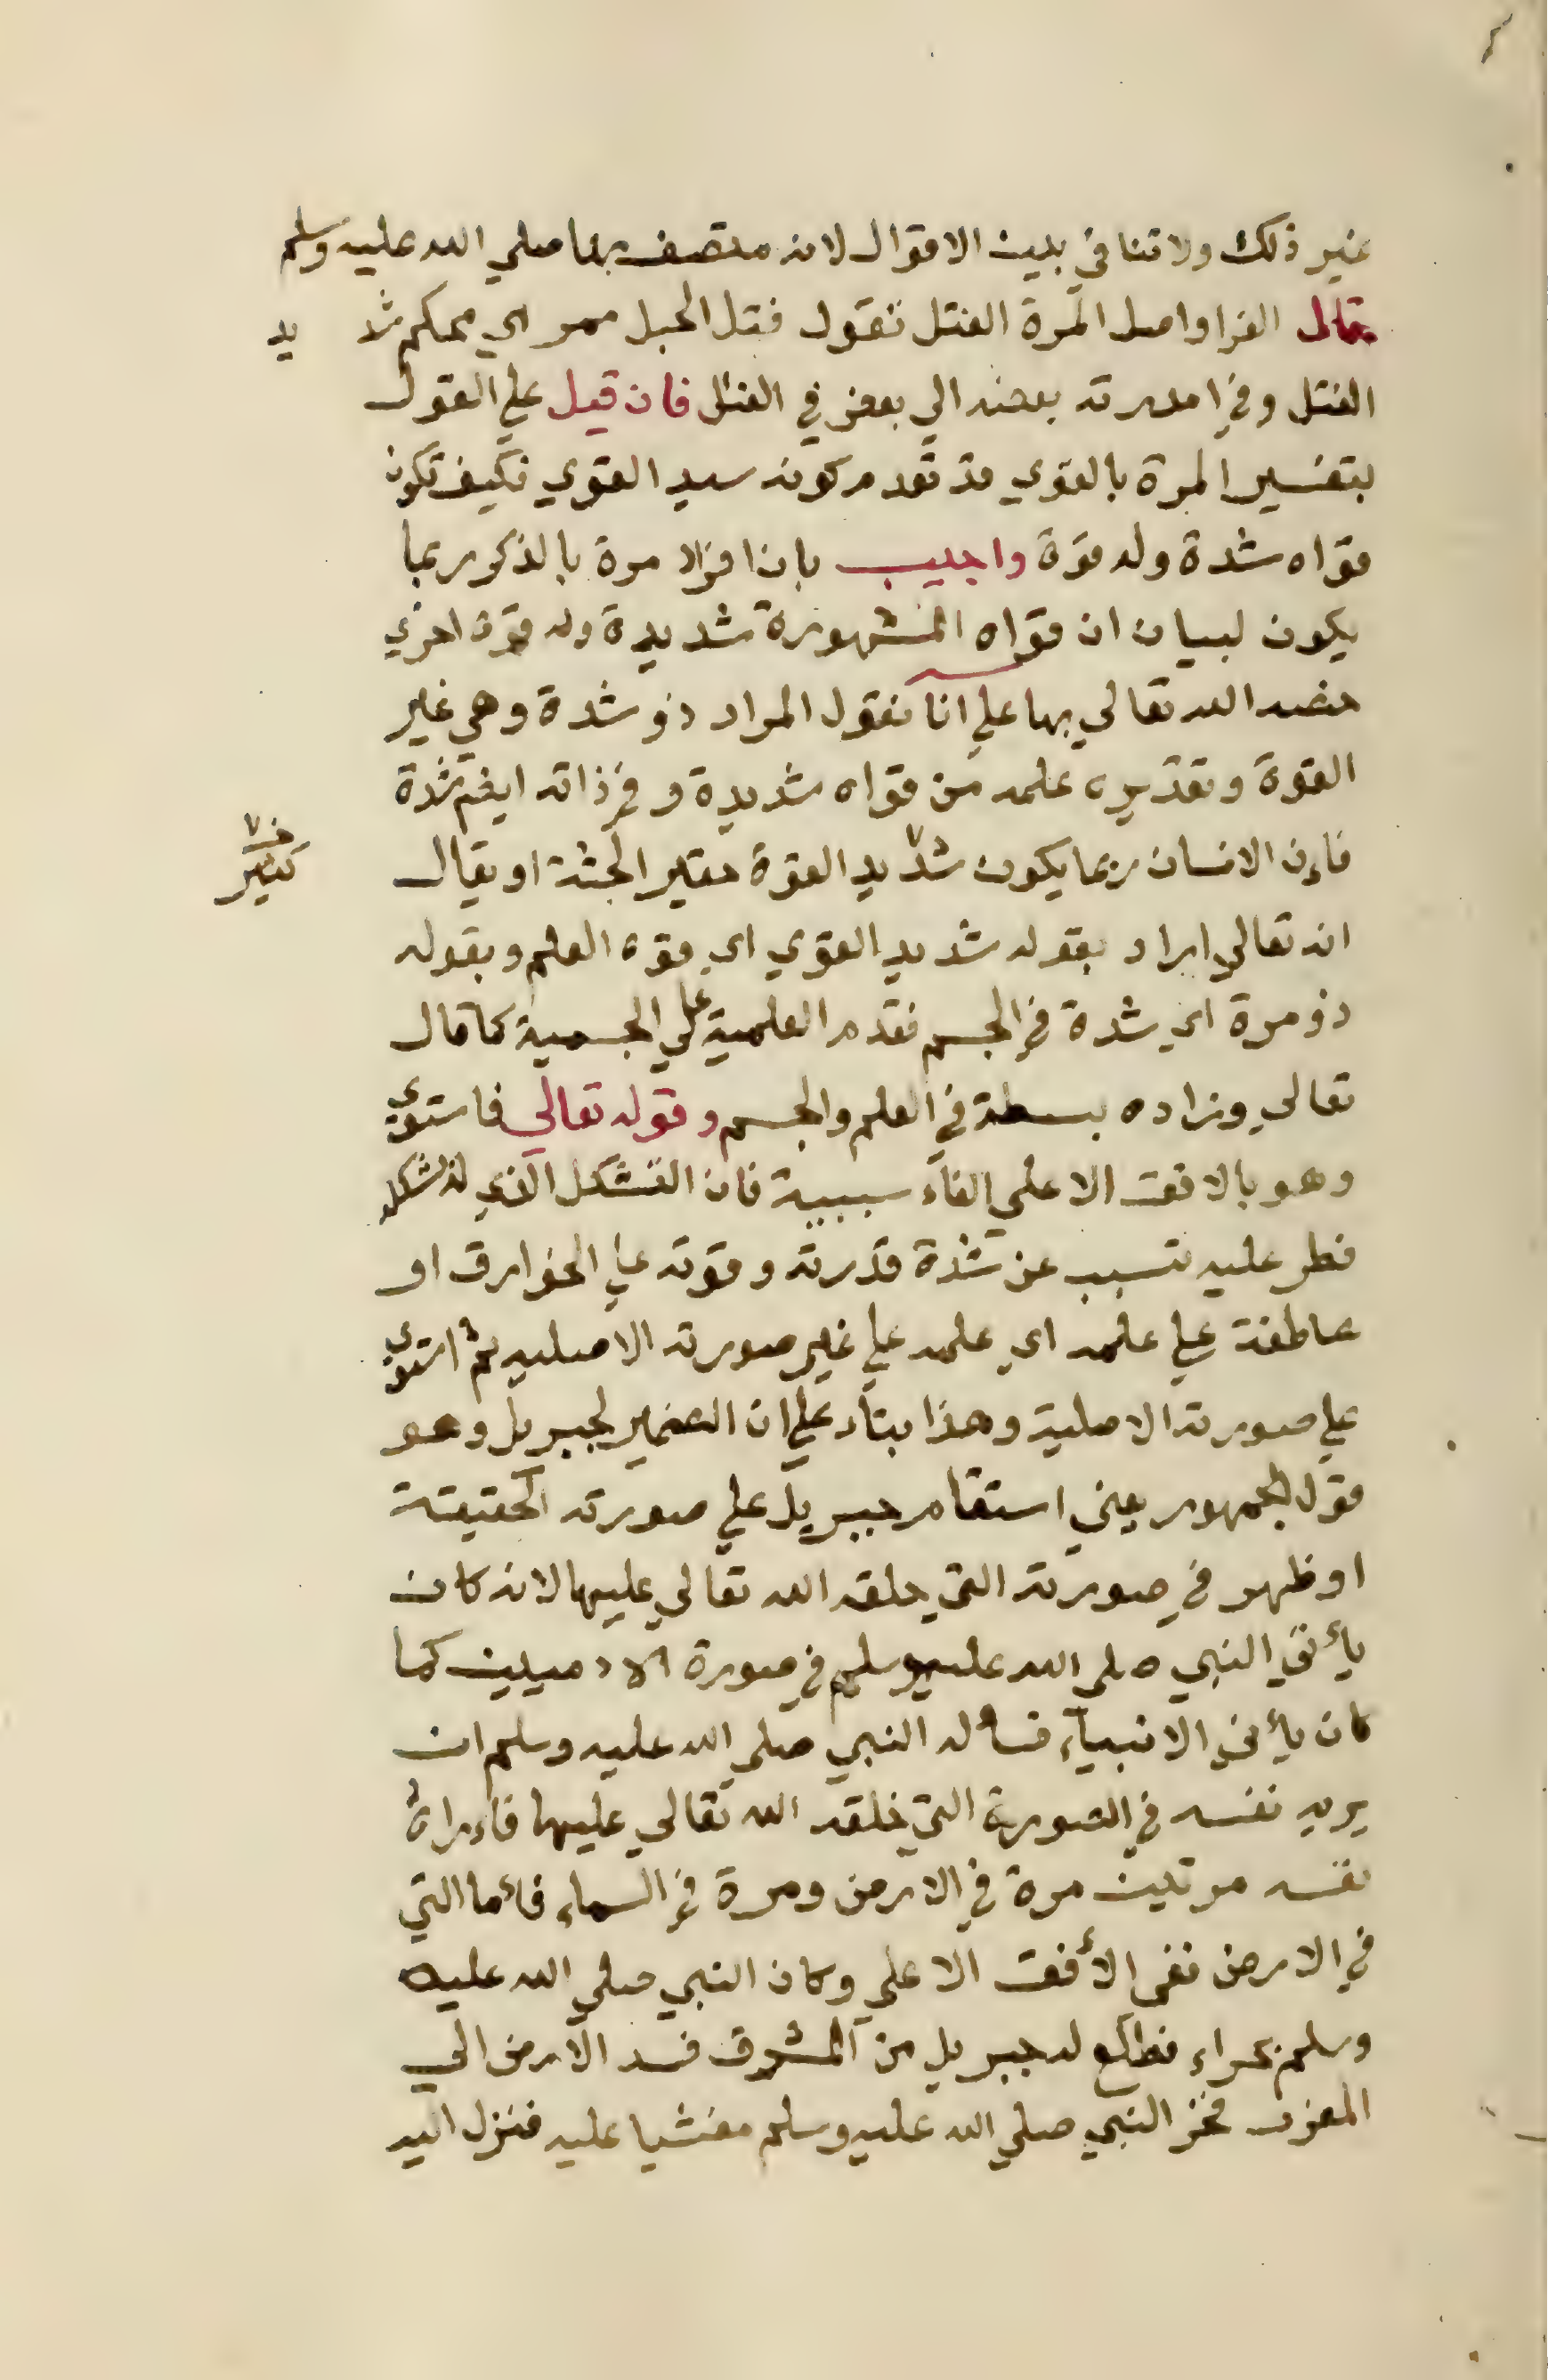 غير ذلك ولا تنافي بين الاقوال لانه متصف بها صلي الله عليه وسلم
قال الفرا واصل المرة الفتل تقول فتل الحبل ممر اي محكم شديد
الفتل وفي امررته بعضه الي بعض في الفتل فان قيل علي القول
بتفسير المرة بالقوي قد تقدم كونه شديد القوي فكيف تكون
قواه شدة وله قوة واجيب بان افراد مرة بالذكر ربما
يكون لبيان ان قواه المشهورة شديدة وله قوة اخري
خصه الله تعالي بها علي انا نقول المراد ذو شدة وهي غير
القوة وتقديره علمه من قواه شديدة وفي ذاته ايضم شدة
فاءن الانسان ربما يكون شديد القوة حقير الجثة او يقال
كبير
انه تعالي اراد بقوله شديد القوي اي قوة العلم وبقوله
ذو مرة اي شدة في الجسم فقدم العلمية علي الجسمية كما قال
تعالي وزاده بسطة في العلم والجسم وقوله تعالي فاستوي
وهو بالافق الاعلي الفاء سببية فان التشكل الذي لتشكله
فطر عليه تسبب عن شدة قدرته وقوته علي الخوارق او
عاطفة علي علمه اي علمه علي غير صورته الاصليه ثم استوي
علي صورته الاصلية وهذا بناء علي ان الضمير لجبريل وهو
قول الجمهور يعني استقام جبريل علي صورته الحقيقة
او ظهر في صورته التي خلقه الله تعالي عليها لانه كان
يأتي النبي صلي الله عليه وسلم في صورة الادميين كما
كان يأتي الانبياء فسأله النبي صلي الله عليه وسلم ان
يريه نفسه في الصورة التي خلقه الله تعالي عليها فاءراه
نفسه مرتين مرة في الارض ومرة في السماء فأما التي
في الارض ففي الأفق الاعلي وكان النبي صلي الله عليه
وسلم بحراء فطلع له جبريل من المشرق فسد الارض الي
المغرب فخر النبي صلي الله عليه وسلم مغشيا عليه فنزل اليه